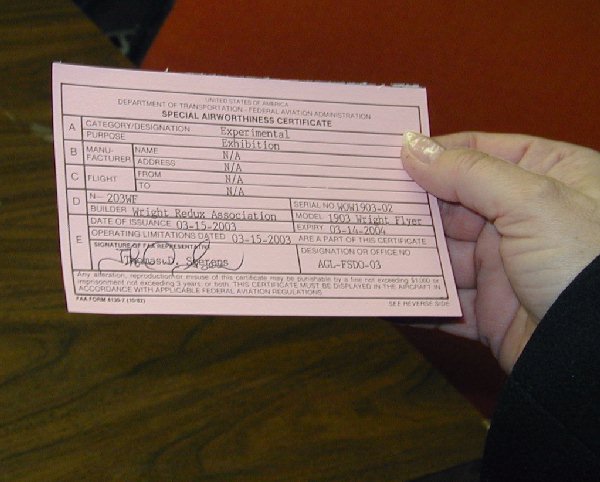 UNITED STATES OF AMERICA
DEPARTMENT OF TRANSPORTATION - FEDERAL AVIATION ADMINISTRATION
SPECIAL AIRWORTHINESS CERTIFICATE
A CATEGORY/DESIGNATION Experimental
PURPOSE Exhibition
B MANU-FACTURER NAME N/A
ADDRESS N/A
C FLIGHT FROM N/A
TO N/A
D N- 203WF SERIAL NO WOW1903-02
BUILDER Wright Redux Association MODEL 1903 Wright Flyer
E DATE OF ISSUANCE 03-15-2003 EXPIRY 03-14-2004
OPERATING LIMITATIONS DATED 03-15-2003 ARE A PART OF THIS CERTIFICATE
SIGNATURE OF FAA REPRESENTATIVE DESIGNATION OR OFFICE NO
Thomas D. AGL-FSDO-03
Any alteration, reproduction or misuse of this certificate may be punishable by a fine not exceeding $1,000 or
imprisonment not exceeding 3 years, or both. THIS CERTIFICATE MUST BE DISPLAYED IN THE AIRCRAFT IN
ACCORDANCE WITH APPLICABLE FEDERAL AVIATION REGULATIONS.
FAA FORM 8130-7 (10/82) SEE REVERSE SIDE